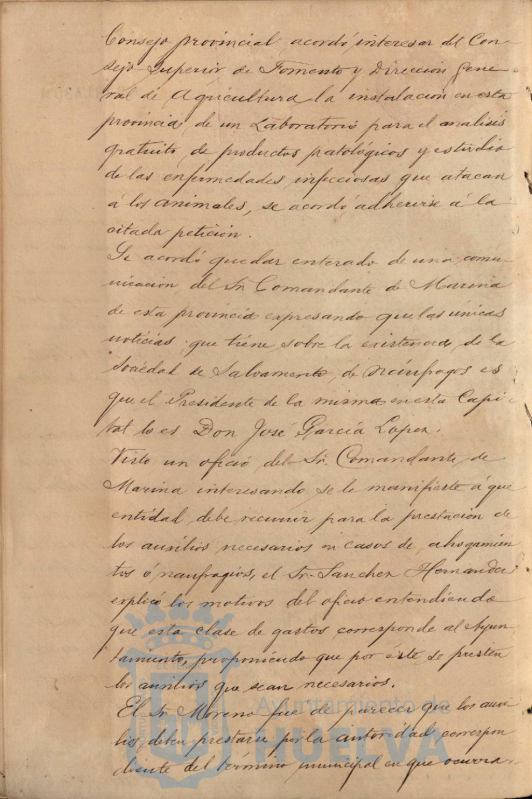 Consejo provincial acordó interesar del Con-
sejo Superior de Fomento y Dirección Gene-
ral de Agricultura la instalación en esta
provincia de un Laboratorio para el análisis
gratuito de productos patológicos y estudio
de las enfermedades infecciosas que atacan
a los animales, se acordó adherirse á la
citada petición.
Se acordó quedar enterado de una comu-
nicación del Sr. Comandante de Marina
de esta provincia expresando que las únicas
noticias que tiene sobre la existencia de la
Sociedad de Salvamento de Náufragos es
que el Presidente de la misma en esta Capi-
tal lo es Don José García Lopez.
Visto un oficio del Sr. Comandante de
Marina interesando se le manifieste á que
entidad debe recurrir para la prestación de
los auxilios necesarios en casos de ahogamien-
tos ó naufragios, el Sr. Sanchez Hernandez
explicó los motivos del oficio entendiendo
que esta clase de gastos corresponde al Ayun-
tamiento, proponiendo que por éste se presten
los auxilios que sean necesarios.
El Sr. Moreno fue de parecer que los auxi-
lios deben prestarse por la autoridad correspon-
diente del término municipal en que ocurra
Ayuntamiento de
HUELVA